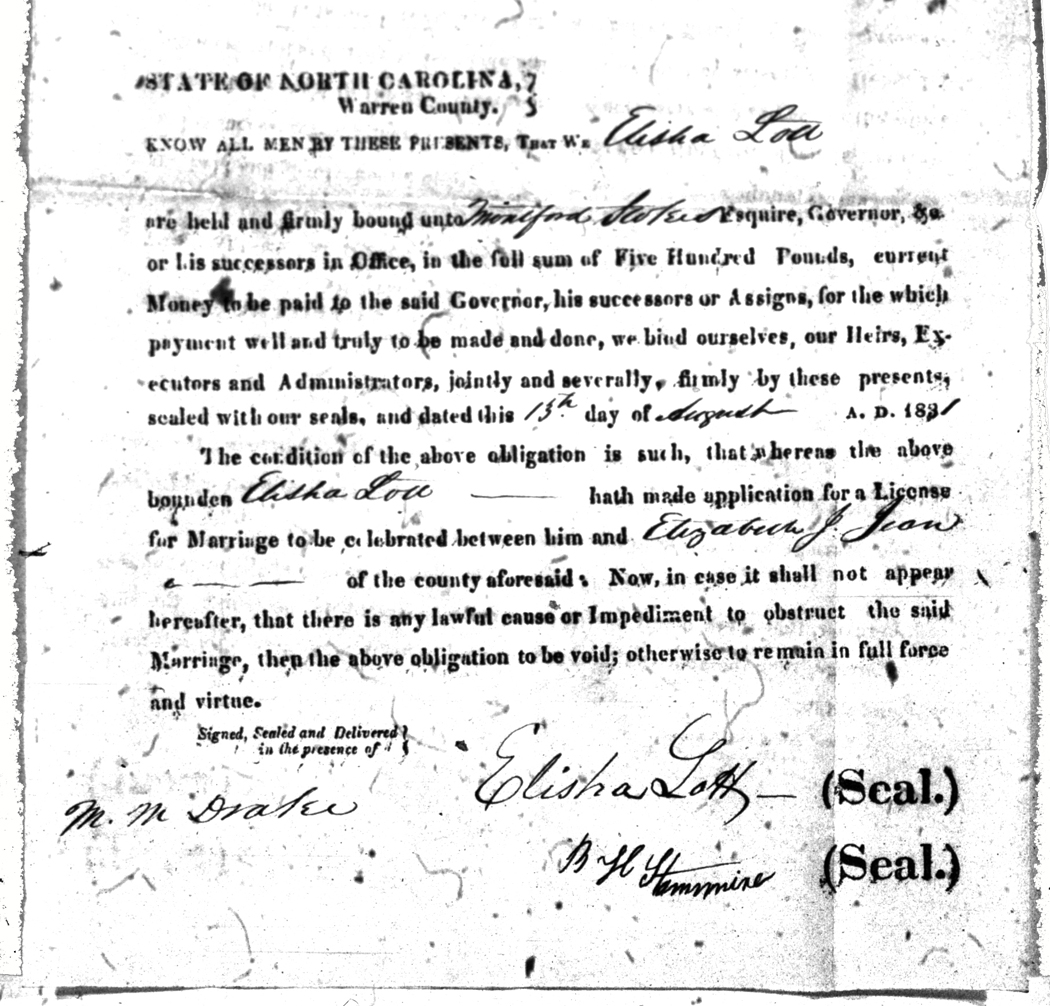 STATE OF NORTH CAROLINA,
Warren County.
KNOW ALL MEN BY THESE PRESENTS, THAT WE Elisha Lott
are held and firmly bound unto Montford Stokes Esquire, Governor, &c.
or his successors in Office, in the full sum of Five Hundred Pounds, current
Money to be paid to the said Governor, his successors or Assigns, for the which
payment well and truly to be made and done, we bind ourselves, our Heirs, Ex-
ecutors and Administrators, jointly and severally, firmly by these presents,
sealed with our seals, and dated this 15th day of August A. D. 1831
The condition of the above obligation is such, that whereas the above
bounden Elisha Lott hath made application for a License
for Marriage to be celebrated between him and Elizabeth J. Jean
of the county aforesaid: Now, in case it shall not appear
hereafter, that there is any lawful cause or Impediment to obstruct the said
Marriage, then the above obligation to be void; otherwise to remain in full force
and virtue.
Signed, Sealed and Delivered
in the presence of
Elisha Lott (Seal.)
M. M Drake
B H (Seal.)